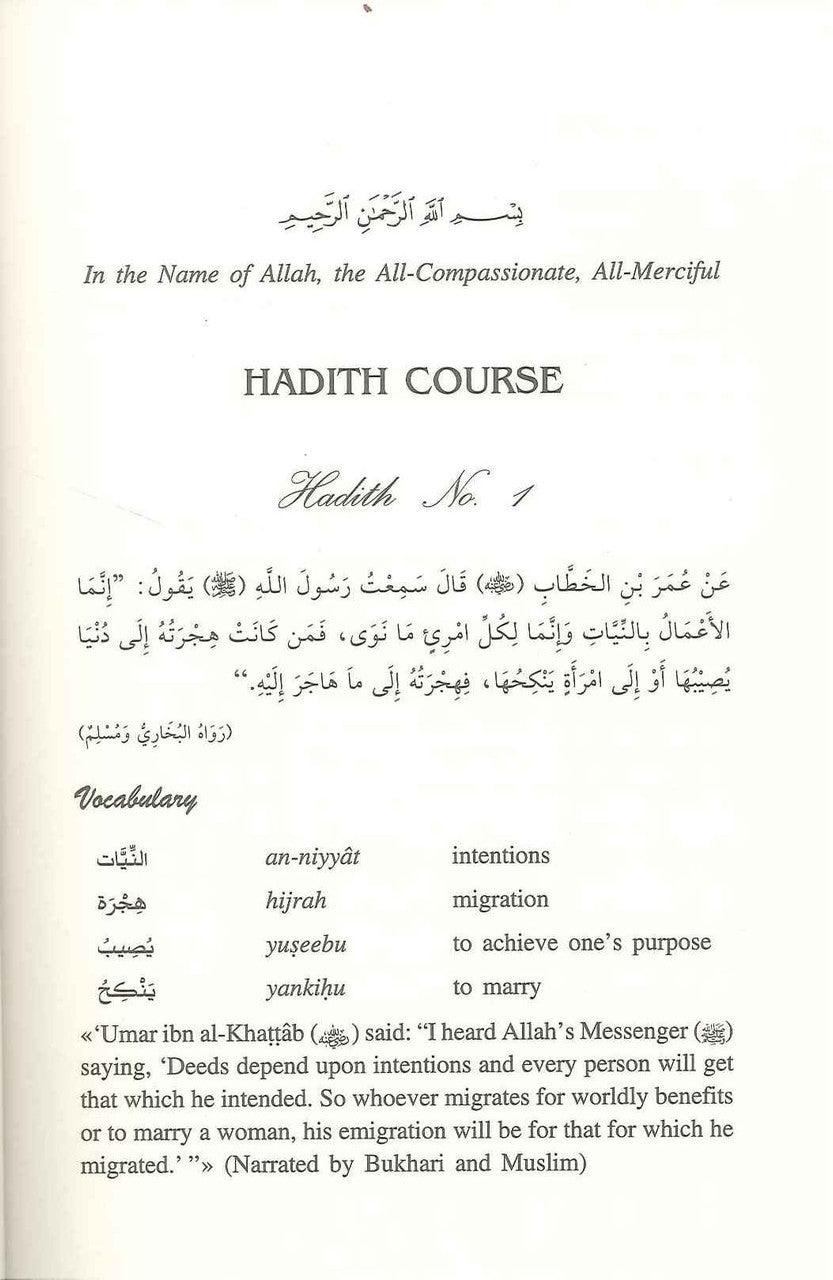 بِسْــــمِ ٱللَّهِ ٱلرَّحْمَٰنِ ٱلرَّحِيـــمِ
In the Name of Allah, the All-Compassionate, All-Merciful
HADITH COURSE
Hadith No. 1
عَنْ عُمَرَ بْنِ الخَطَّابِ (رضي الله عنه) قَالَ سَمِعْتُ رَسُولَ اللَّهِ (ﷺ) يَقُولُ: ”إِنَّمَا
الأَعْمَالُ بِالنِّيَّاتِ وَإِنَّمَا لِكُلِّ امْرِئٍ مَا نَوَى، فَمَن كَانَتْ هِجْرَتُهُ إِلَى دُنْيَا
يُصِيْبُهَا أَوْ إِلَى امْرَأَةٍ يَنْكِحُهَا، فَهِجْرَتُهُ إِلَى مَا هَاجَرَ إِلَيْهِ.“
(رَوَاهُ البُخَارِيُّ وَمُسْلِمٌ)
Vocabulary
النِّيَّات an-niyyât intentions
هِجْرَة hijrah migration
يُصِيبُ yuṣeebu to achieve one’s purpose
يَنْكِحُ yankiḥu to marry
«‘Umar ibn al-Khaṭṭâb (رضي الله عنه) said: “I heard Allah’s Messenger (ﷺ)
saying, ‘Deeds depend upon intentions and every person will get
that which he intended. So whoever migrates for worldly benefits
or to marry a woman, his emigration will be for that for which he
migrated.’ ”» (Narrated by Bukhari and Muslim)